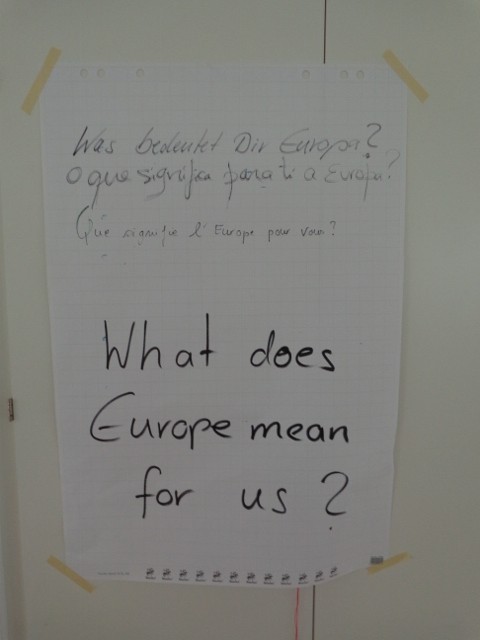 Was bedeutet Dir Europa?
O que significa para ti a Europa?
Que signifie l'Europe pour vous?
What does
Europe mean
for us?